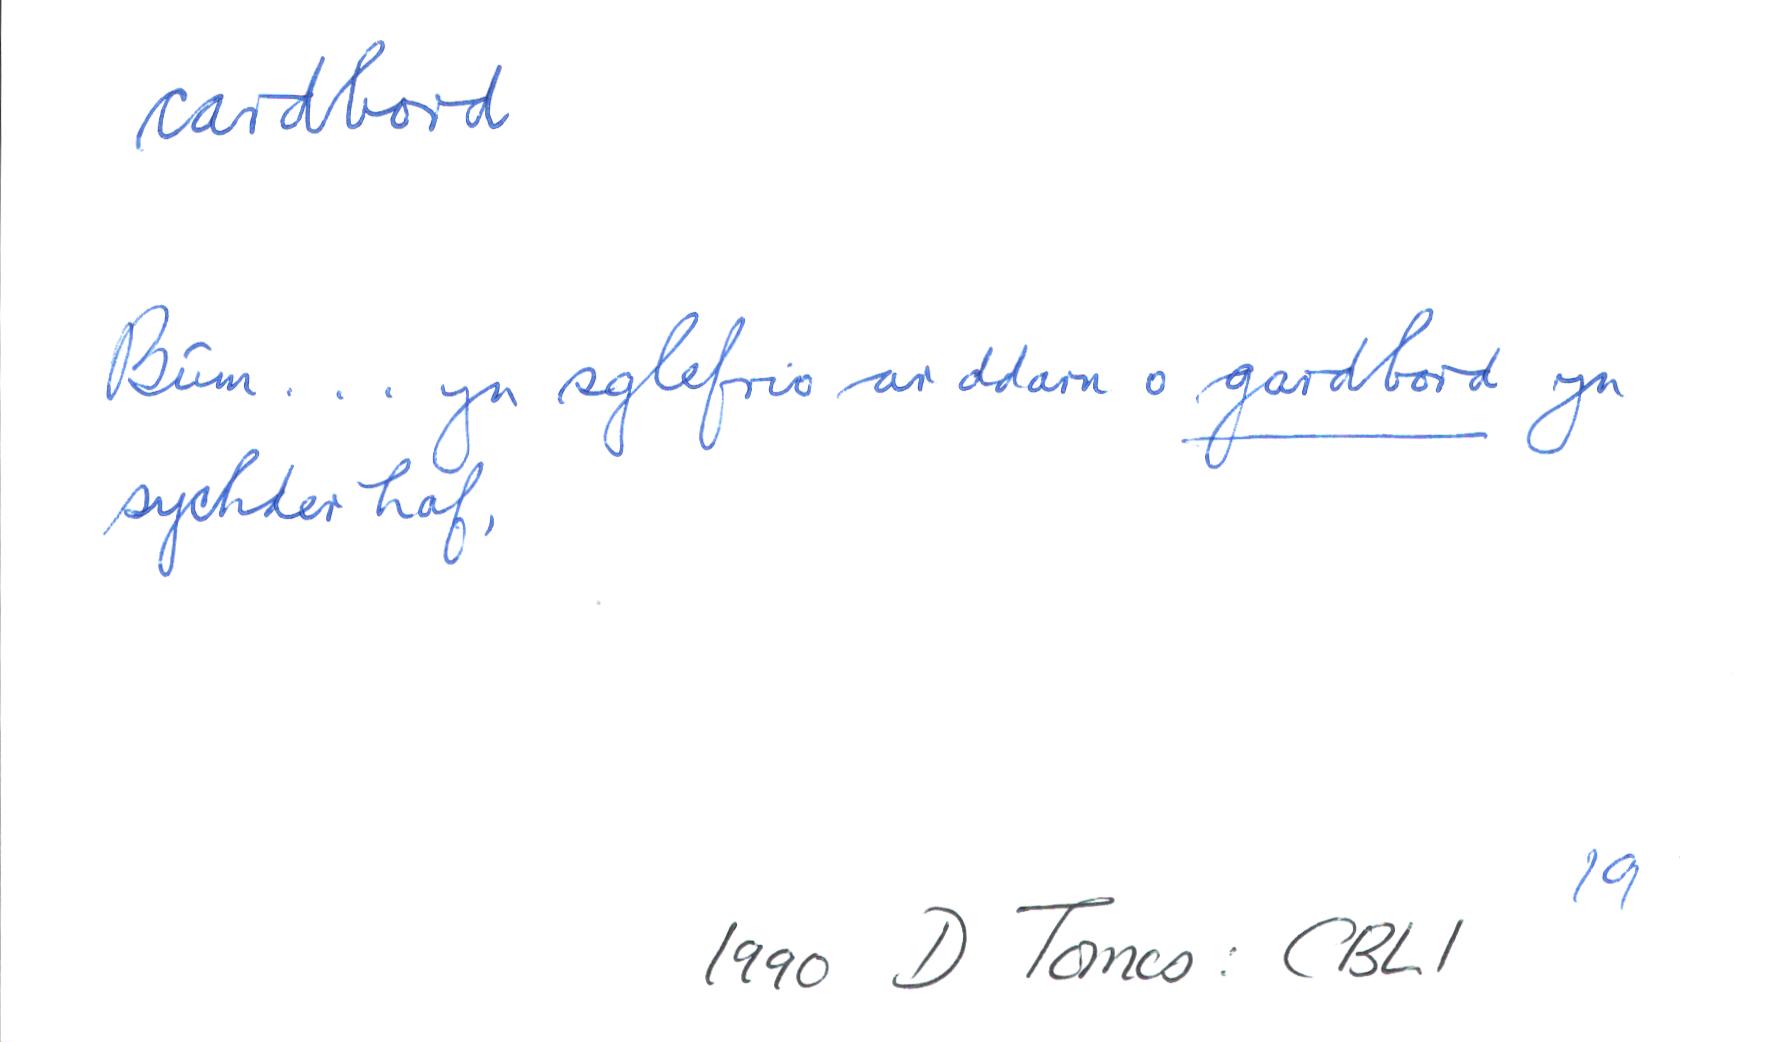 cardbord
Bûm . . . yn sglefrio ar ddarn o gardbord yn
sychder haf,
19
1990 D Tomos : CBLl